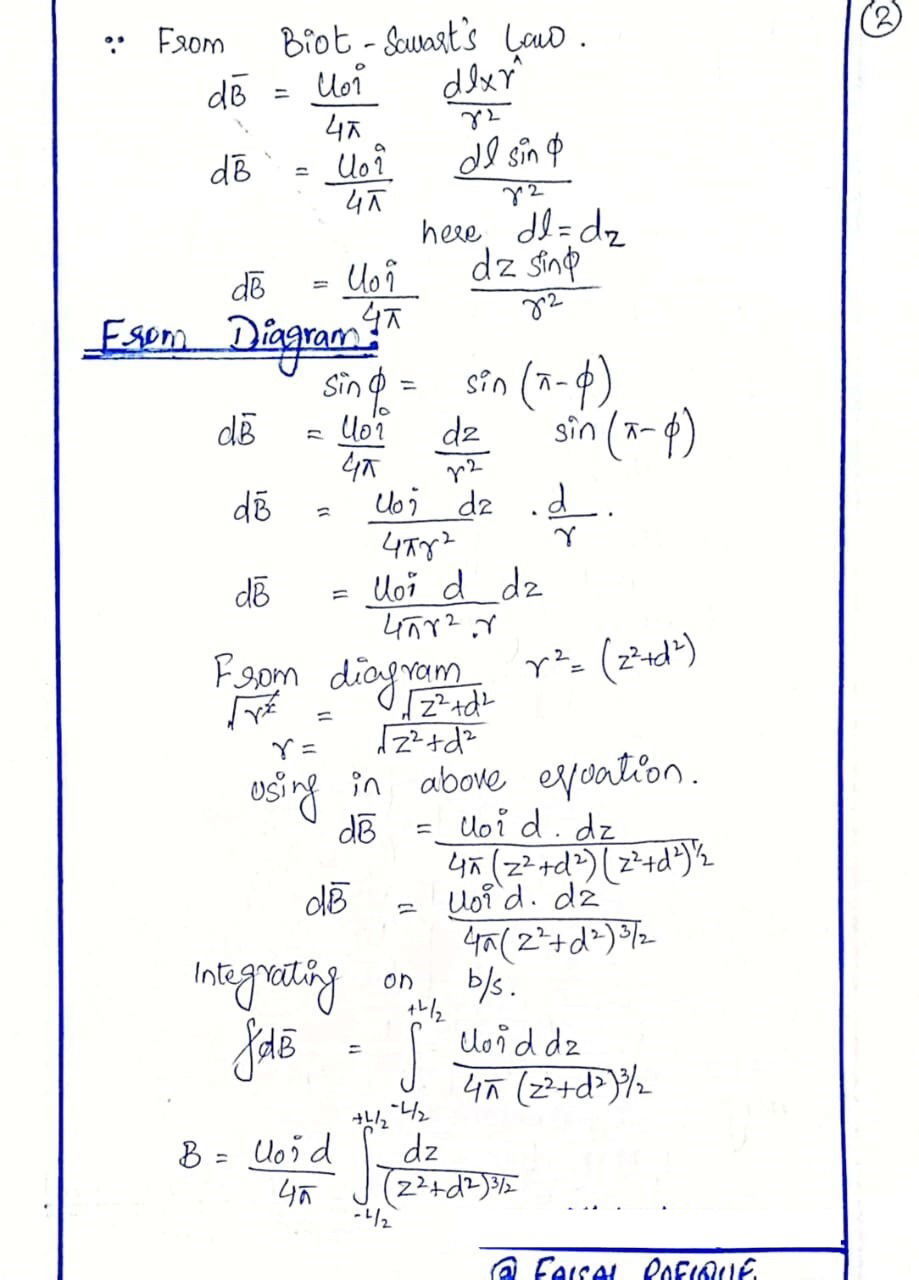 ②
∵ From Biot-Savart's Law.
dB̄ = μ₀i/4π dl×r̂/r²
dB̄ = μ₀i/4π dl sinϕ/r²
here dl = dz
dB̄ = μ₀i/4π dz sinϕ/r²
From Diagram:
sinϕ = sin(π-ϕ)
dB̄ = μ₀i/4π dz/r² sin(π-ϕ)
dB̄ = μ₀i dz/4πr² . d/r .
dB̄ = μ₀i d dz/4πr².r
From diagram r² = (z²+d²)
√r² = √z²+d²
r = √z²+d²
using in above equation.
dB̄ = μ₀i d. dz/4π(z²+d²)(z²+d²)^1/2
dB̄ = μ₀i d. dz/4π(z²+d²)^3/2
Integrating on b/s.
∫dB̄ = ∫_{-L/2}^{+L/2} μ₀i d dz/4π(z²+d²)^3/2
B = μ₀i d/4π ∫_{-L/2}^{+L/2} dz/(z²+d²)^3/2
@ FAISAL RAFIQUE.